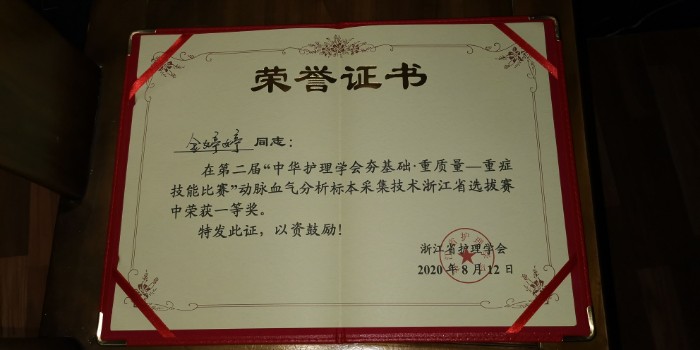 荣誉证书
金婷婷 同志：
在第二届“中华护理学会夯基础·重质量—重症
技能比赛”动脉血气分析标本采集技术浙江省选拔赛
中荣获一等奖。
特发此证，以资鼓励！
浙江省护理学会
2020年8月12日